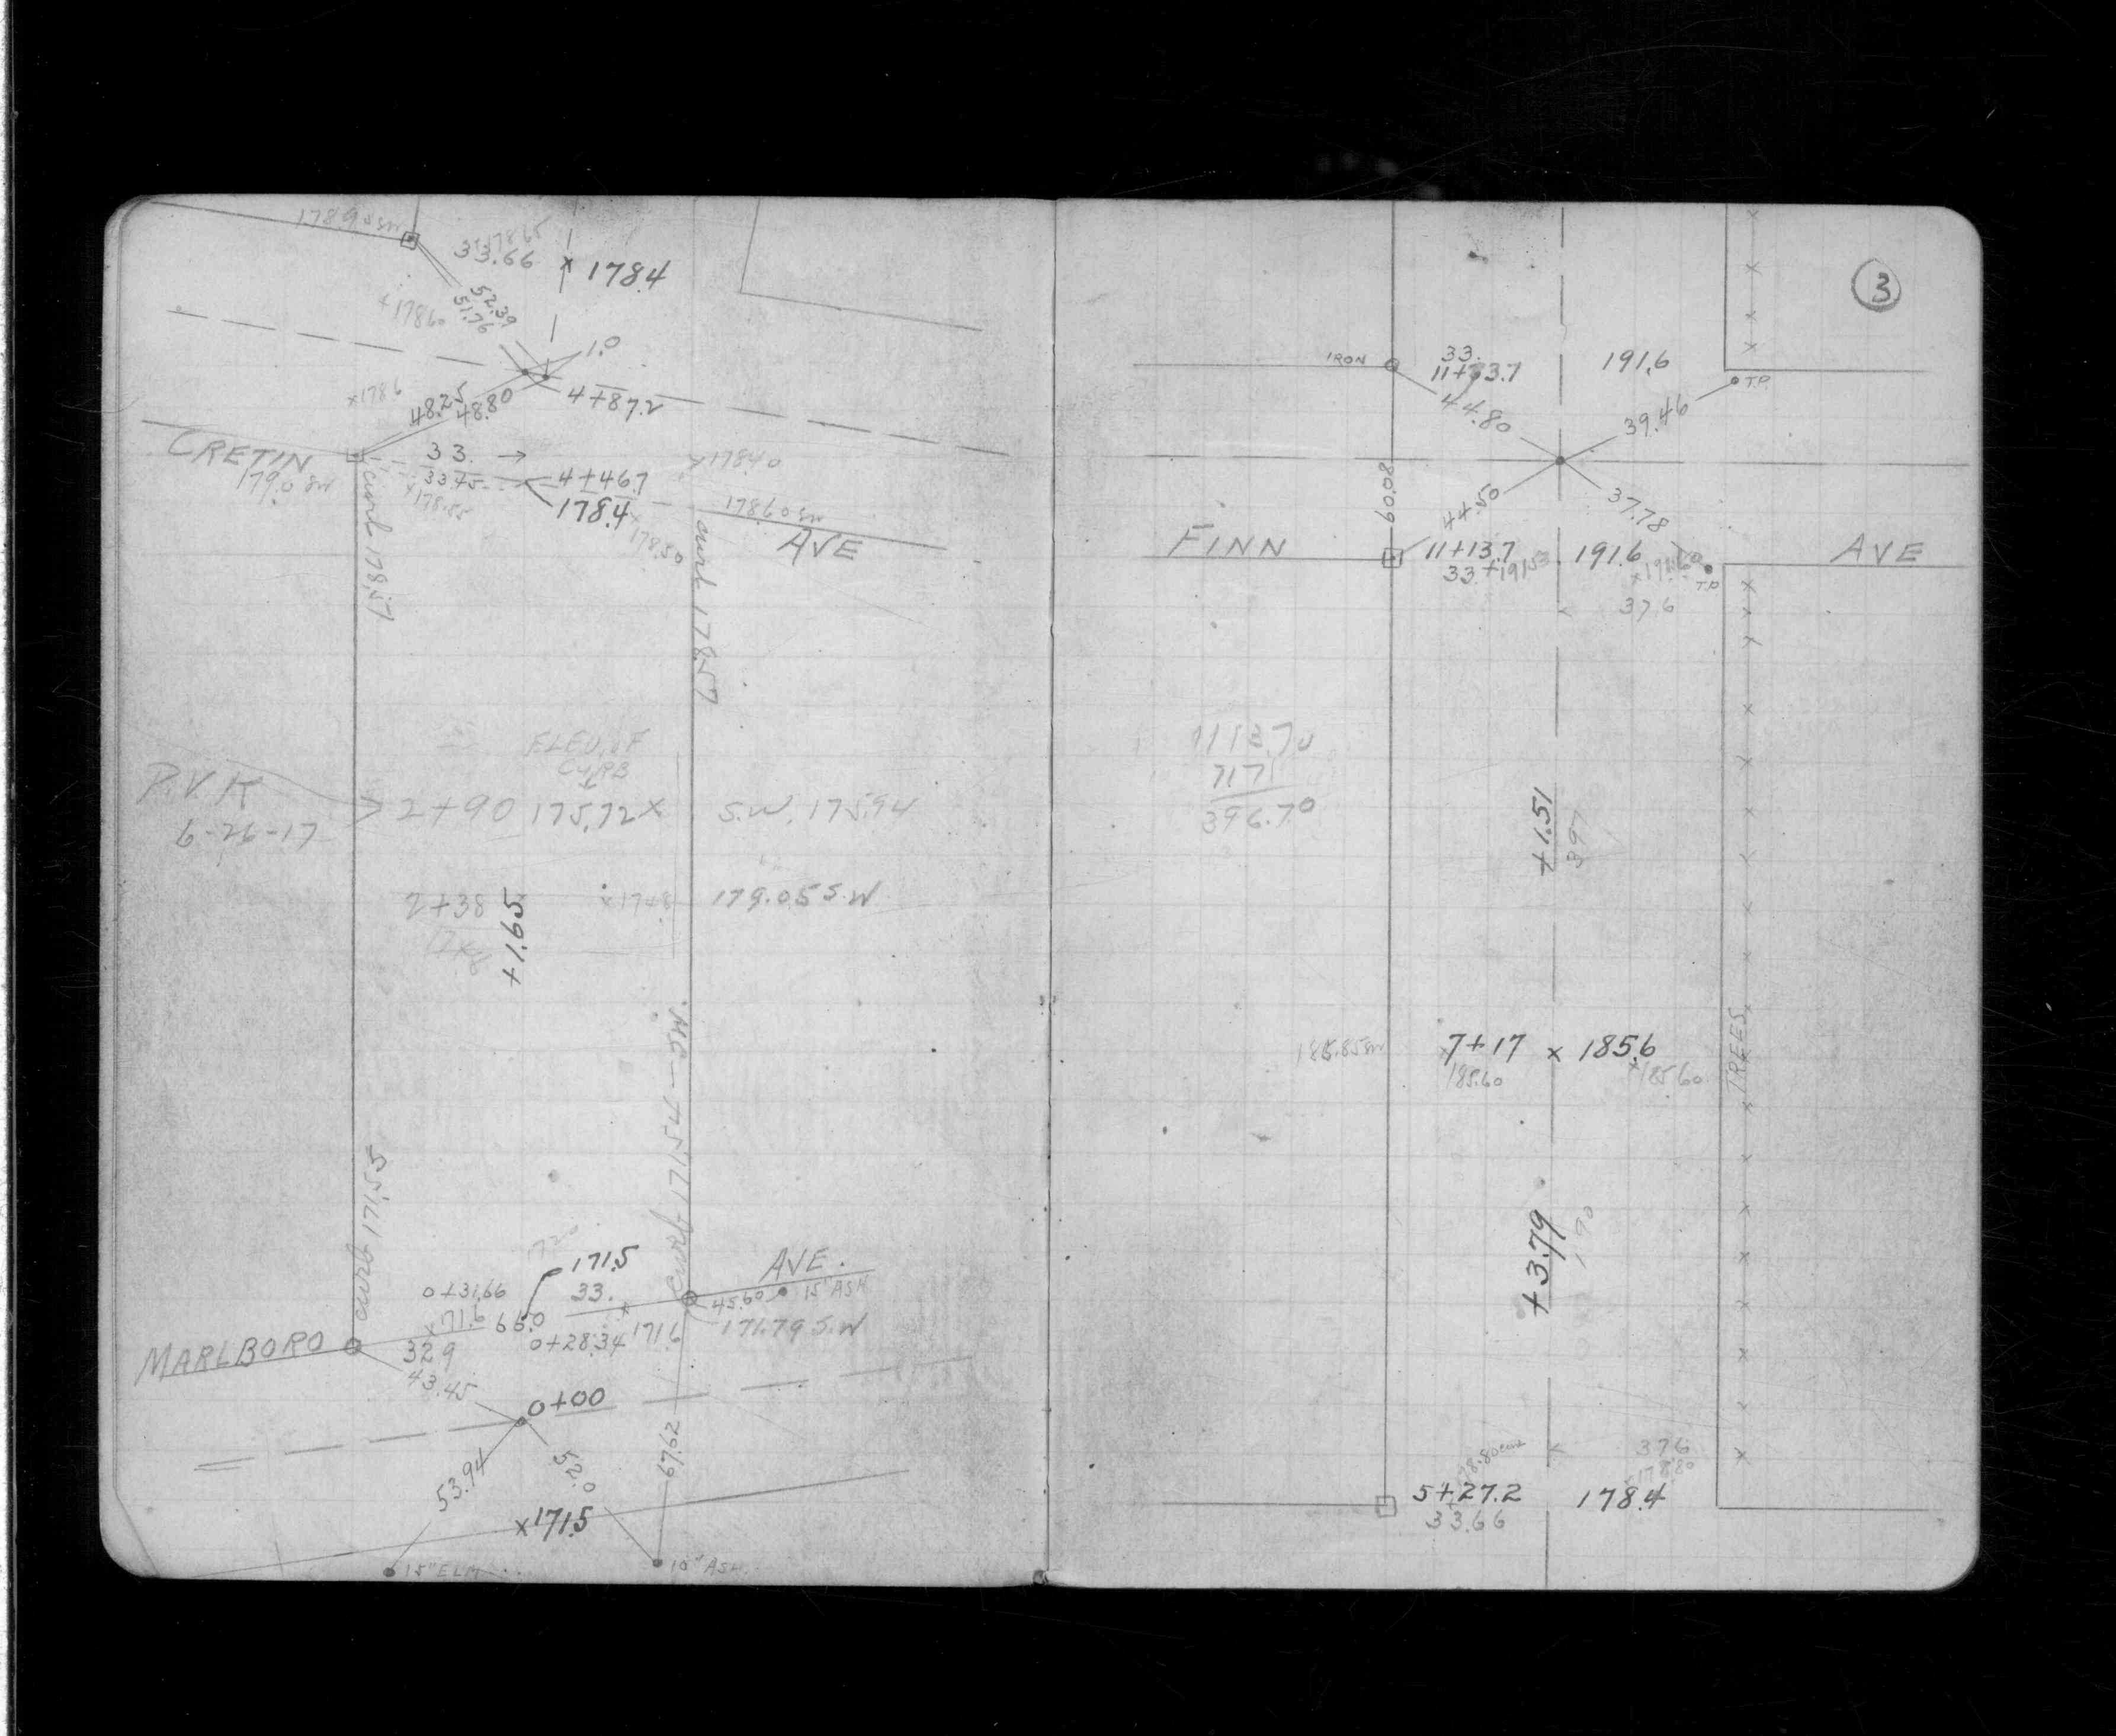 178.90 SW
33.66
x 178.4
52.39
51.76
+178.60
1.0
x178.6
48.25
48.80
4+87.2
CRETIN
179.0 SW
33. →
33.45
4+46.7
178.4
x178.40
178.60 SW
AVE
x178.55
x178.50
curb 178.57
curb 178.57
ELEV. OF
CURB
P.V.K
6-26-17
2+90 175.72 x
S.W. 175.94
2+38
x174.8
179.05 S.W
+1.65
curb 171.54 - SW.
curb 171.55
172.0
171.5
0+31.66
33.
AVE.
45.60
15" ASH
x71.6
66.0
0+28.34
171.6
171.79 S.W
MARLBORO
32.9
43.45
0+00
53.94
52.0
67.62
x171.5
15" ELM
10" ASH
3
IRON
33.
11+73.7
191.6
T.P.
44.80
39.46
60.08
44.50
37.78
FINN
11+13.7
191.6
AVE
33
+191.53
x191.60
T.P.
37.6
1113.70
717
396.70
+1.51
397
TREES
185.85 SW
7+17 x 185.6
185.60
x185.60
+3.79
190
178.80 curb
37.6
x178.80
5+27.2
178.4
33.66